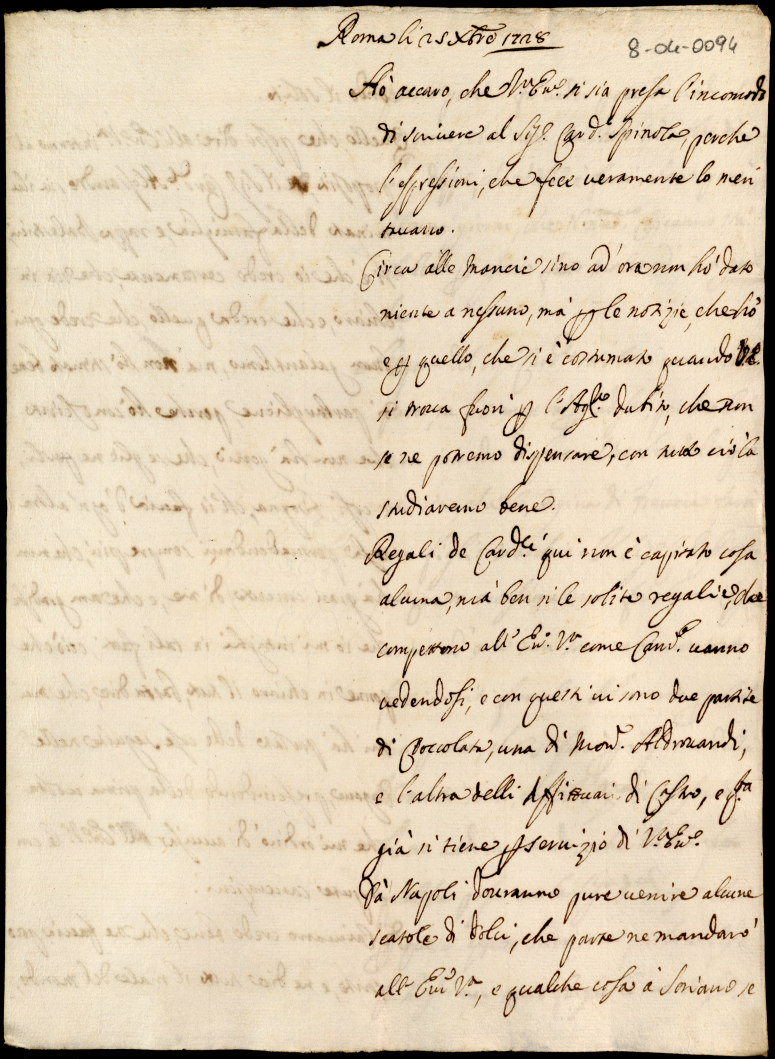 Roma li 25 Xbre 1728
8-04-0094
Hò accaro, che V.ra Em.a si sia presa l'incomodo
di scrivere al Sig.r Card. Spinola, perche
l'espressioni, che fece veramente lo meri
tavano.
Circa alle Mancie sino ad'ora non hò dato
niente a nessuno, mà p le notizie, che hò
e p quello, che si è costumato quando
si trova fuori p l'Agl.o dubito, che non
se ne potremo dispensare, con tutto ciò la
studiaremo bene.
Regali de Card.li quì non è capitato cosa
alcuna, mà ben sì le solite regalie, che
competono all'Em.a V.ra come Card.e vanno
vedendosi, e con questi vi sono due partite
di Cioccolata, una di Mons.r Aldrovandi,
e l'altra delli Affittuari di Castro, e q.ta
già si tiene p servizio di V.ra Em.a
Dà Napoli dovranno pure venire alcune
scatole di dolci, che parte ne mandarò
all'Em.a V.ra, e qualche cosa à Soriano se